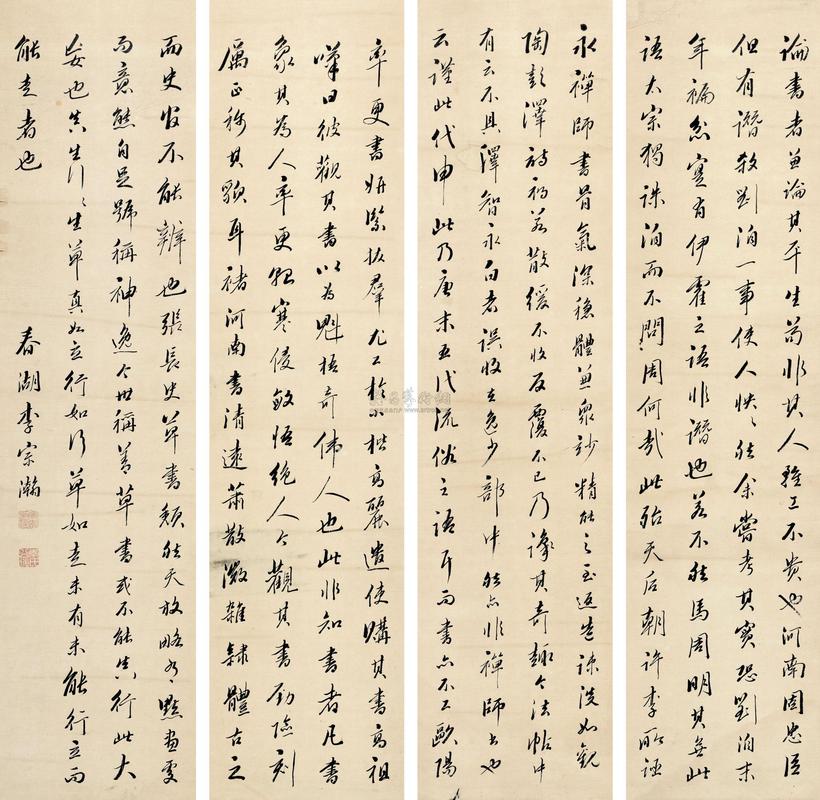 論書者兼論其平生苟非其人雖工不貴也河南固忠臣
但有譖殺劉洎一事使人怏〻然余嘗考其實恐劉洎末
年褊忿實有伊霍之語非譖也若不然馬周明其無此
語太宗獨誅洎而不問周何哉此殆天后朝許李所誣
永禪師書骨氣深穩體兼衆妙精能之至返造疎淡如觀
陶彭澤詩初若散緩不收反覆不已乃識其奇趣今法帖中
有云不具釋智永白者誤收在逸少部中然亦非禪師書也
云謹此代申此乃唐末五代流俗之語耳而書亦不工歐陽
率更書妍緊拔羣尤工於小楷高麗遣使購其書高祖
嘆曰彼觀其書以為魁梧奇偉人也此非知書者凡書
象其為人率更貌寒侵敏悟絕人今觀其書勁險刻
厲正稱其貌耳褚河南書清遠蕭散微雜隸體古之
而史皆不能辨也張長史草書頹然天放略有點畫處
而意態自足號稱神逸今世稱善草書或不能真行此大
妄也真生行〻生草真如立行如行草如走未有未能行立而
能走者也 春湖李宗瀚